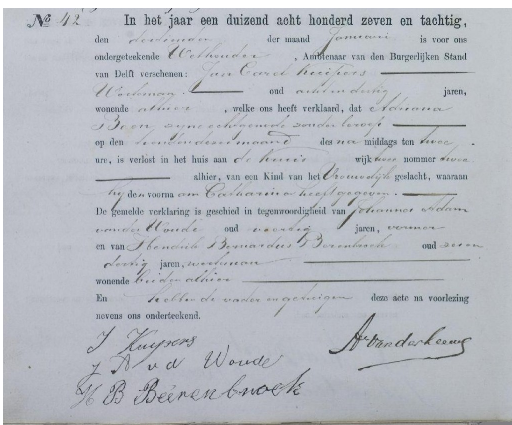 No 42 In het jaar een duizend acht honderd zeven en tachtig,
den dertienden der maand Januari is voor ons
ondergeteekende Wethouder, Ambtenaar van den Burgerlijken Stand
van Delft verschenen: Jan Carel Kuijpers
Werkman oud achtendertig jaren,
wonende alhier, welke ons heeft verklaard, dat Adriana
Boon, zijne echtgenoote zonder beroep
op den dezer maand des na middags ten twee
ure, is verlost in het huis aan de wijk twee nommer twee
alhier, van een Kind van het Vrouwelijk geslacht, waaraan
hij den voorna am Catharina heeft gegeven.
De gemelde verklaring is geschied in tegenwoordigheid van Johannes Adam
van der Woude oud veertig jaren, verwer
en van Hendrik Bernardus Beerenbroek oud zeven
dertig jaren, werkman
wonende beiden alhier
En hebben de vader en getuigen deze acte na voorlezing
nevens ons onderteekend.
J Kuypers
J A v d Woude
H B Beerenbroek
A. van der Leeuw